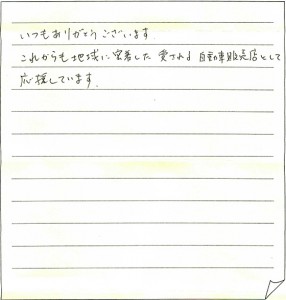 いつもありがとうございます.
これからも地域に密着した 愛される 自動車販売店として
応援しています.